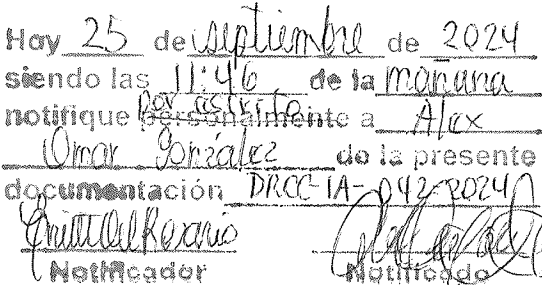 Hoy 25 de septiembre de 2024
siendo las 11:46 de la mañana
por escrito
notifique personalmente a Alex
Omar González de la presente
documentación DRCC-IA-042-2024
Del Rosario
Notificador Notificado